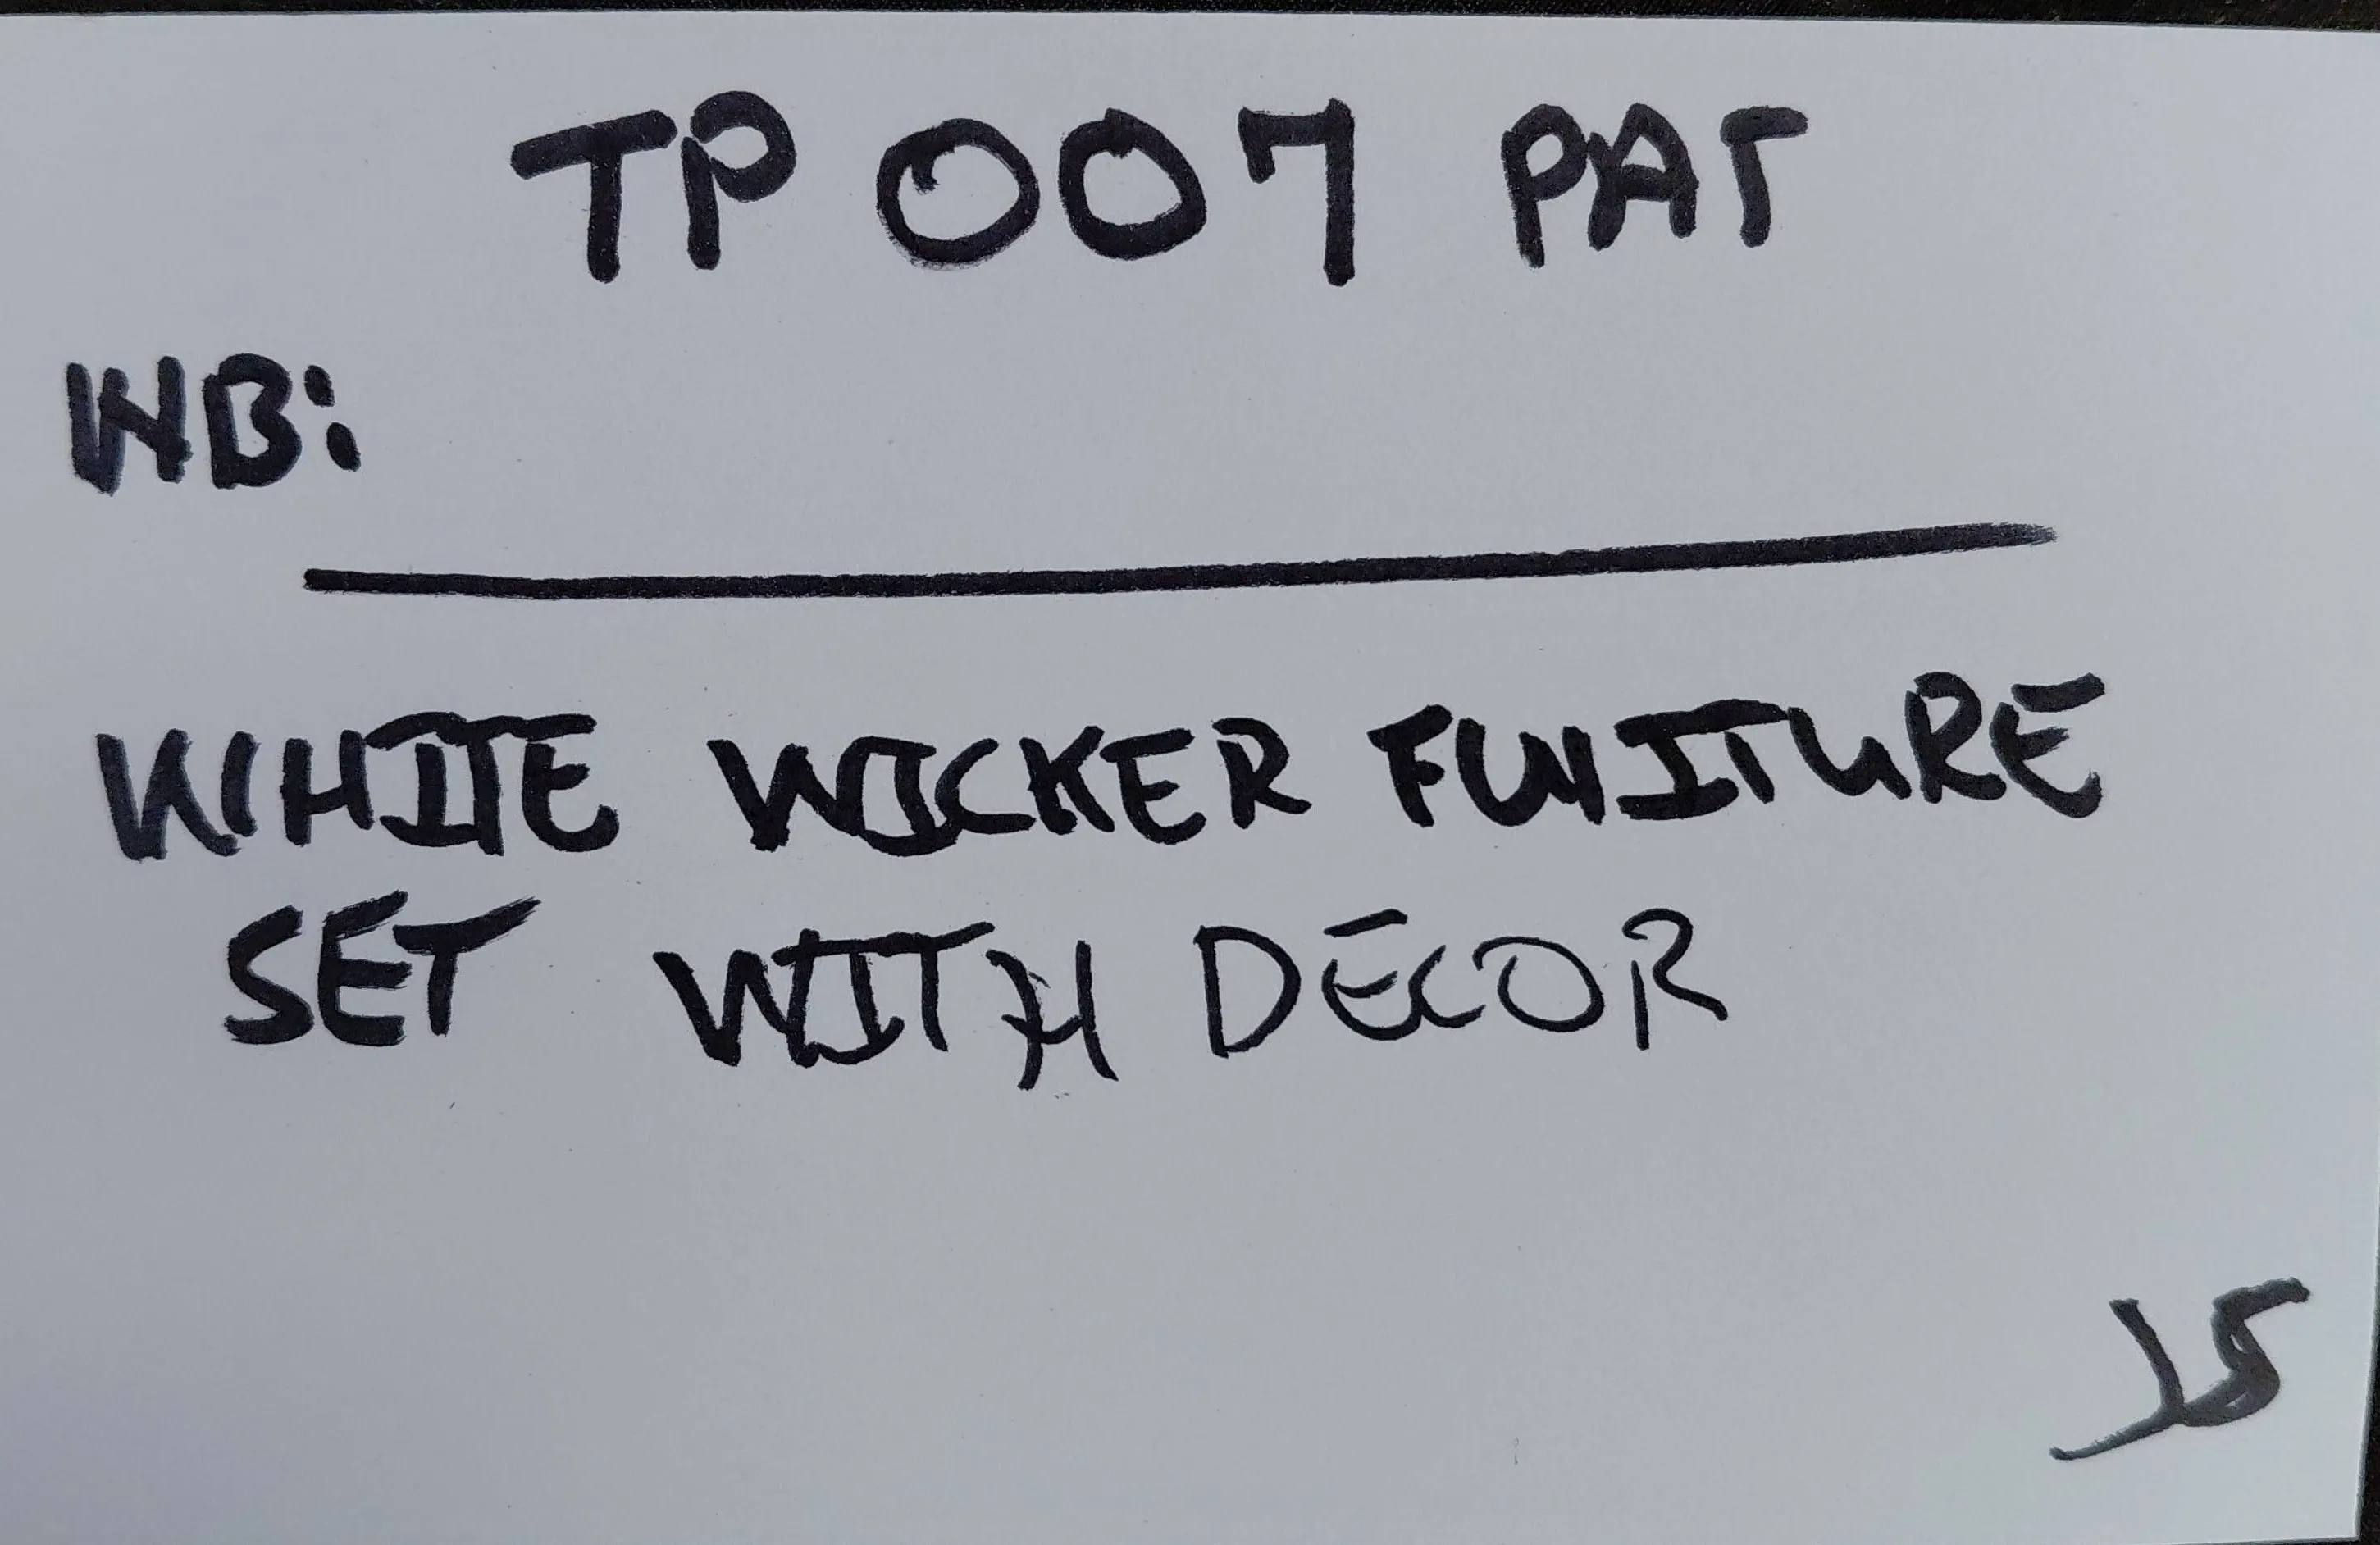 TP 007 PAT
WB:
WHITE WICKER FUNITURE
SET WITH DECOR
JS